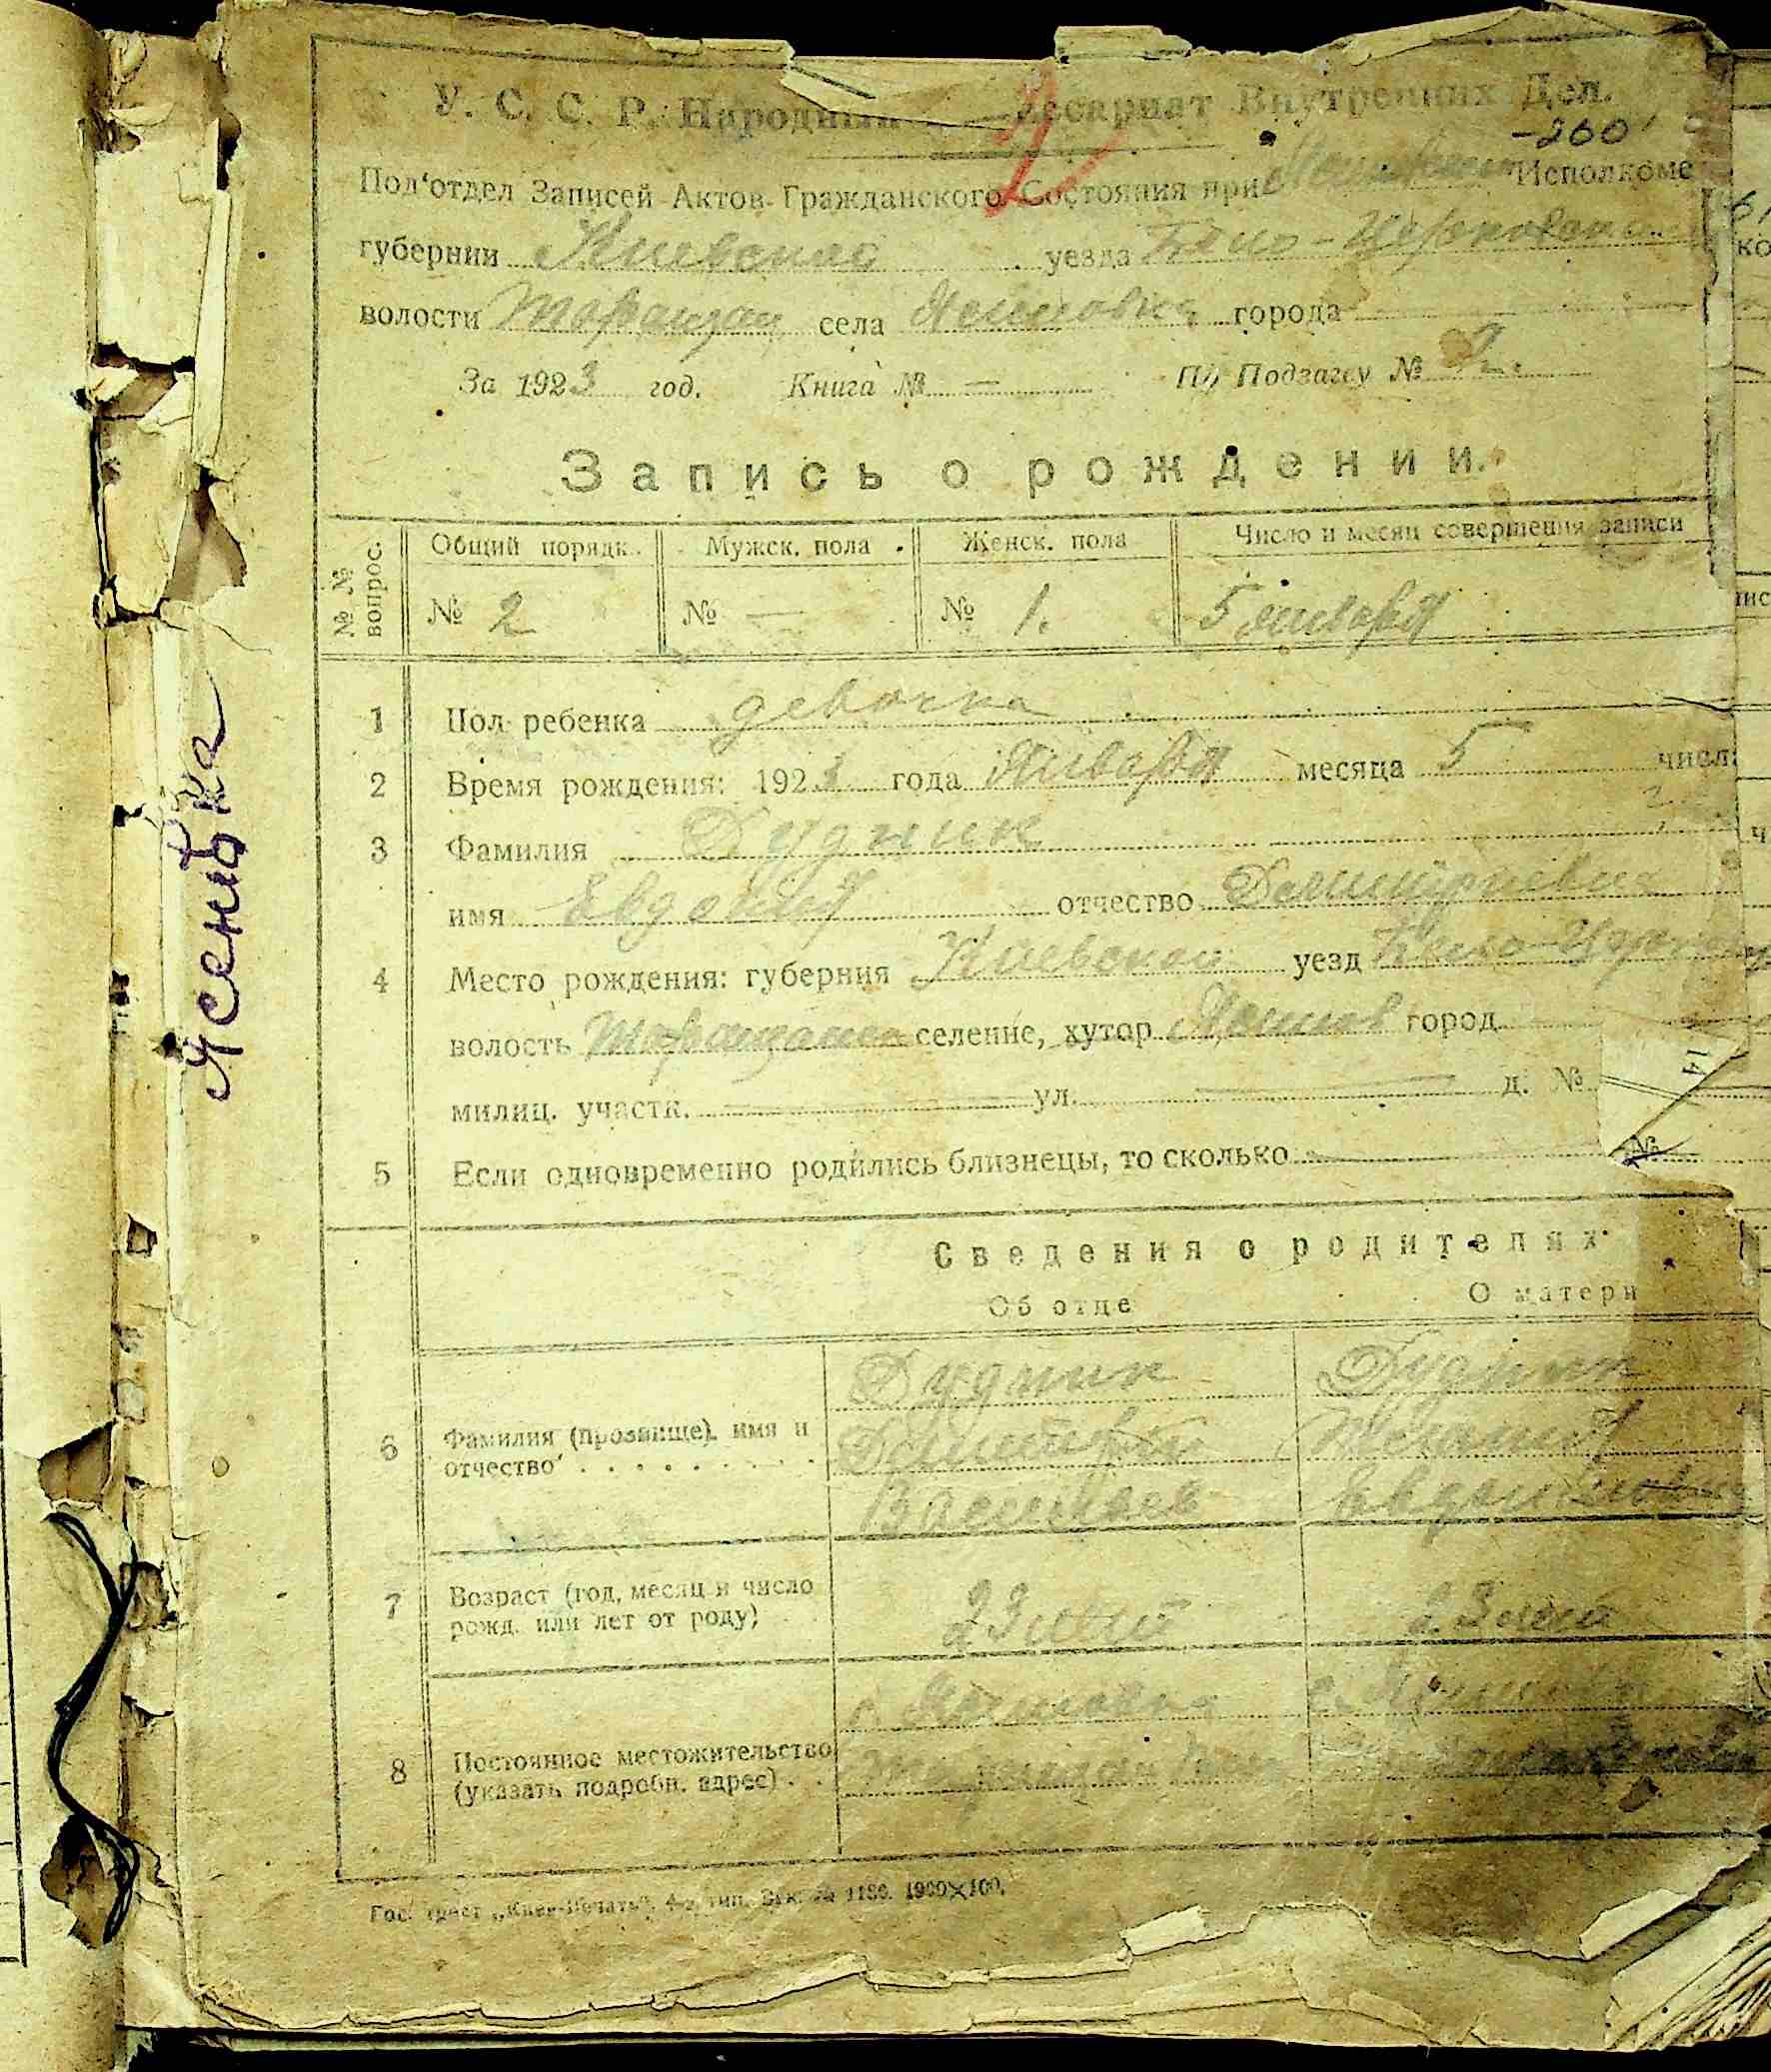 У. С. С. Р. Народный Внутренних Дел.
-260
2
Под'отдел Записей Актов Гражданского Состояния при Исполкоме
губернии Киевской уезда Бело-Церковского
волости Таращан села Ясиновка города —
За 1923 год. Книга № — По Подзагу № 2.
Запись о рождении.
№ № вопрос.
Общий порядк. Мужск. пола Женск. пола Число и месяц совершения записи
№ 2 № — № 1. 5 января
1 Пол ребенка девочка
2 Время рождения: 1923 года Января месяца 5 числа
3 Фамилия Дудник
имя Евдокия отчество Димитриевна
4 Место рождения: губерния Киевской уезд Бело-Церков
волость Таращанск селение, хутор Ясинов город
милиц. участк. — ул. — д. №
5 Если одновременно родились близнецы, то сколько —
14
№
Сведения о родителях
Об отце О матери
6 Фамилия (прозвище), имя и отчество
Дудник Дудник
Димитрий
Васильев Евдокимовна
7 Возраст (год, месяц и число рожд. или лет от роду)
23 лет 23 лет
8 Постоянное местожительство (указать подробн. адрес)
с. Ясиновка с. Ясиновка
Гос. трест „Киев-Печать", 4-я тип. Зак. № 1180. 1900×100.
Ясенівка